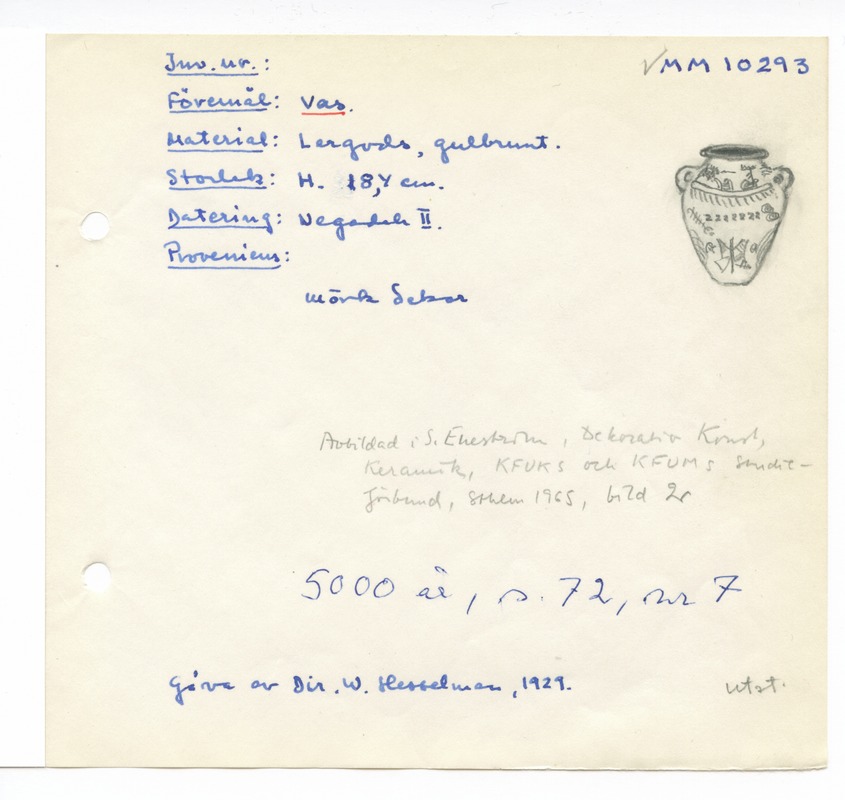 Inv. nr. :
✓MM 10293
Föremål: Vas.
Material: Lergods, gulbrunt.
Storlek: H. 18,4 cm.
Datering: Negadeh II.
Proveniens:
mörk dekor
Avbildad i S. Eneström, Dekorativ Konst,
Keramik, KFUKs och KFUMs Studie-
förbund, Sthlm 1965, bild 2
5000 år, s. 72, nr 7
Gåva av Dir. W. Hesselman, 1929.
utst.